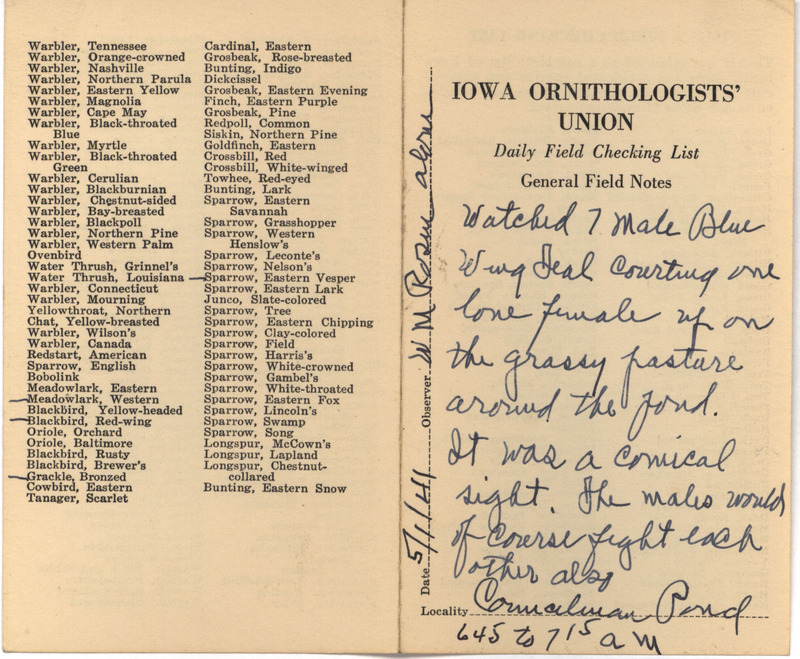 Warbler, Tennessee
Warbler, Orange-crowned
Warbler, Nashville
Warbler, Northern Parula
Warbler, Eastern Yellow
Warbler, Magnolia
Warbler, Cape May
Warbler, Black-throated
Blue
Warbler, Myrtle
Warbler, Black-throated
Green
Warbler, Cerulian
Warbler, Blackburnian
Warbler, Chestnut-sided
Warbler, Bay-breasted
Warbler, Blackpoll
Warbler, Northern Pine
Warbler, Western Palm
Ovenbird
Water Thrush, Grinnel's
Water Thrush, Louisiana
Warbler, Connecticut
Warbler, Mourning
Yellowthroat, Northern
Chat, Yellow-breasted
Warbler, Wilson's
Warbler, Canada
Redstart, American
Sparrow, English
Bobolink
Meadowlark, Eastern
Meadowlark, Western
Blackbird, Yellow-headed
Blackbird, Red-wing
Oriole, Orchard
Oriole, Baltimore
Blackbird, Rusty
Blackbird, Brewer's
Grackle, Bronzed
Cowbird, Eastern
Tanager, Scarlet
Cardinal, Eastern
Grosbeak, Rose-breasted
Bunting, Indigo
Dickcissel
Grosbeak, Eastern Evening
Finch, Eastern Purple
Grosbeak, Pine
Redpoll, Common
Siskin, Northern Pine
Goldfinch, Eastern
Crossbill, Red
Crossbill, White-winged
Towhee, Red-eyed
Bunting, Lark
Sparrow, Eastern
Savannah
Sparrow, Grasshopper
Sparrow, Western
Henslow's
Sparrow, Leconte's
Sparrow, Nelson's
Sparrow, Eastern Vesper
Sparrow, Eastern Lark
Junco, Slate-colored
Sparrow, Tree
Sparrow, Eastern Chipping
Sparrow, Clay-colored
Sparrow, Field
Sparrow, Harris's
Sparrow, White-crowned
Sparrow, Gambel's
Sparrow, White-throated
Sparrow, Eastern Fox
Sparrow, Lincoln's
Sparrow, Swamp
Sparrow, Song
Longspur, McCown's
Longspur, Lapland
Longspur, Chestnut-
collared
Bunting, Eastern Snow
Date 5/1/41 Observer W M Rosen alone
IOWA ORNITHOLOGISTS'
UNION
Daily Field Checking List
General Field Notes
Watched 7 Male Blue
Wing Teal courting one
lone female up on
the grassy pasture
around the pond.
It was a comical
sight. The males would
of course fight each
other also
Locality Councilman Pond
645 to 715 a M